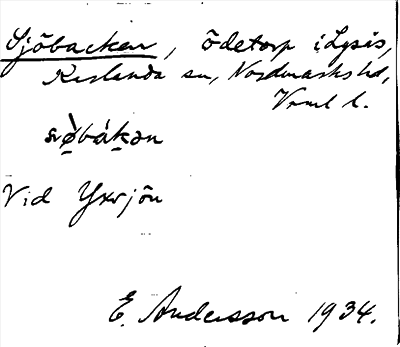 Sjöbacken, ödetorp i Lysis,
Karlanda sn, Nordmarks hd,
Vrml l.
Vid Yxsjön
E. Andersson 1934.